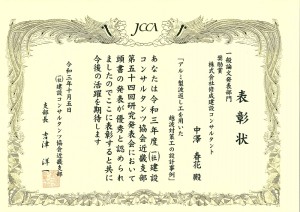 JCCA
表彰状
一般論文発表部門
奨励賞
株式会社修成建設コンサルタント
中澤 春花 殿
「アルミ型波返し工を用いた
越波対策工の設計事例」
あなたは令和三年度(社)建設
コンサルタンツ協会近畿支部
第五十四回研究発表会において
頭書の発表が優秀と認められ
ましたのでここに表彰すると共に
今後の活躍を期待します
令和三年十月五日
(社)建設コンサルタンツ協会近畿支部
支部長 吉津 洋一